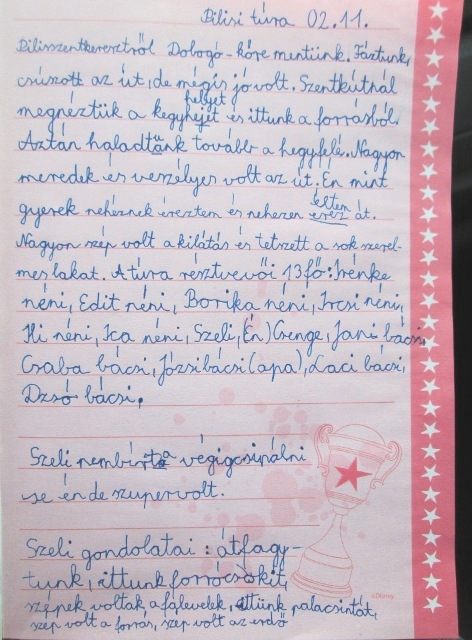 Pilisi túra 02.11.
Pilisszentkeresztről Dobogó-kőre mentünk. Fáztunk,
csúszott az út, de mégis jó volt. Szentkútnál
helyet
megnéztük a kegyhejet és ittunk a forrásból.
Aztán haladtunk tovább a hegyfelé. Nagyon
meredek és veszélyes volt az út. Én mint
gyerek nehéznek éreztem és nehezen éltem át.
Nagyon szép volt a kilátás és tetszett a sok szerel-
mes lakat. A túra résztvevői 13 fő: Irénke
néni, Edit néni, Borika néni,Ircsi néni,
Ili néni, Ica néni, Szeli, Én) Csenge, Jani bácsi
Csaba bácsi, Józsi bácsi (apa), Laci bácsi,
Dzsó bácsi.
Szeli nem bírta végigcsinálni
se én de szuper volt.
Szeli gondolatai: átfagy-
tunk, ittunk forrócsokit,
szépek voltak a falevelek, ettünk palacsintát,
szép volt a forrás, szép volt az erdő
©Disney